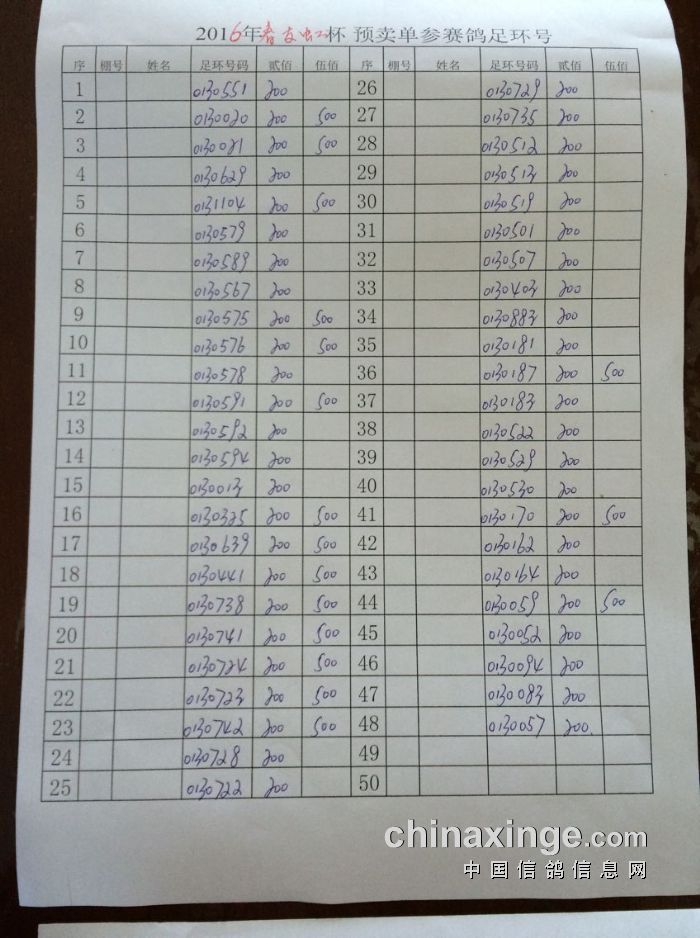 2016年春友虹杯 预卖单参赛鸽足环号
序 棚号 姓名 足环号码 贰佰 伍佰 序 棚号 姓名 足环号码 贰佰 伍佰
1 0130551 200 26 0130729 200
2 0130020 200 500 27 0130735 200
3 0130021 200 500 28 0130512 200
4 0130629 200 29 0130513 200
5 0131104 200 500 30 0130519 200
6 0130579 200 31 0130501 200
7 0130589 200 32 0130507 200
8 0130567 200 33 0130403 200
9 0130575 200 500 34 0130883 200
10 0130576 200 500 35 0130181 200
11 0130578 200 36 0130187 200 500
12 0130591 200 500 37 0130183 200
13 0130592 200 38 0130522 200
14 0130594 200 39 0130529 200
15 0130013 200 40 0130530 200
16 0130325 200 500 41 0130170 200 500
17 0130639 200 500 42 0130162 200
18 0130441 200 500 43 0130164 200
19 0130738 200 500 44 0130059 200 500
20 0130741 200 500 45 0130052 200
21 0130724 200 500 46 0130094 200
22 0130723 200 500 47 0130083 200
23 0130742 200 500 48 0130057 200.
24 0130728 200 49
25 0130722 200 50
chinaxinge.com
中国信鸽信息网